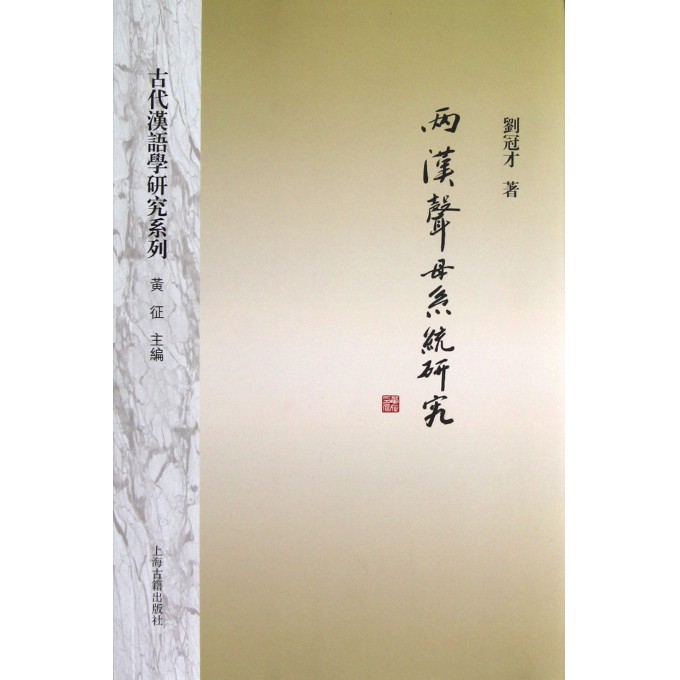 劉冠才 著
两漢聲母系統研究
古代漢語學研究系列
黃征 主編
上海古籍出版社